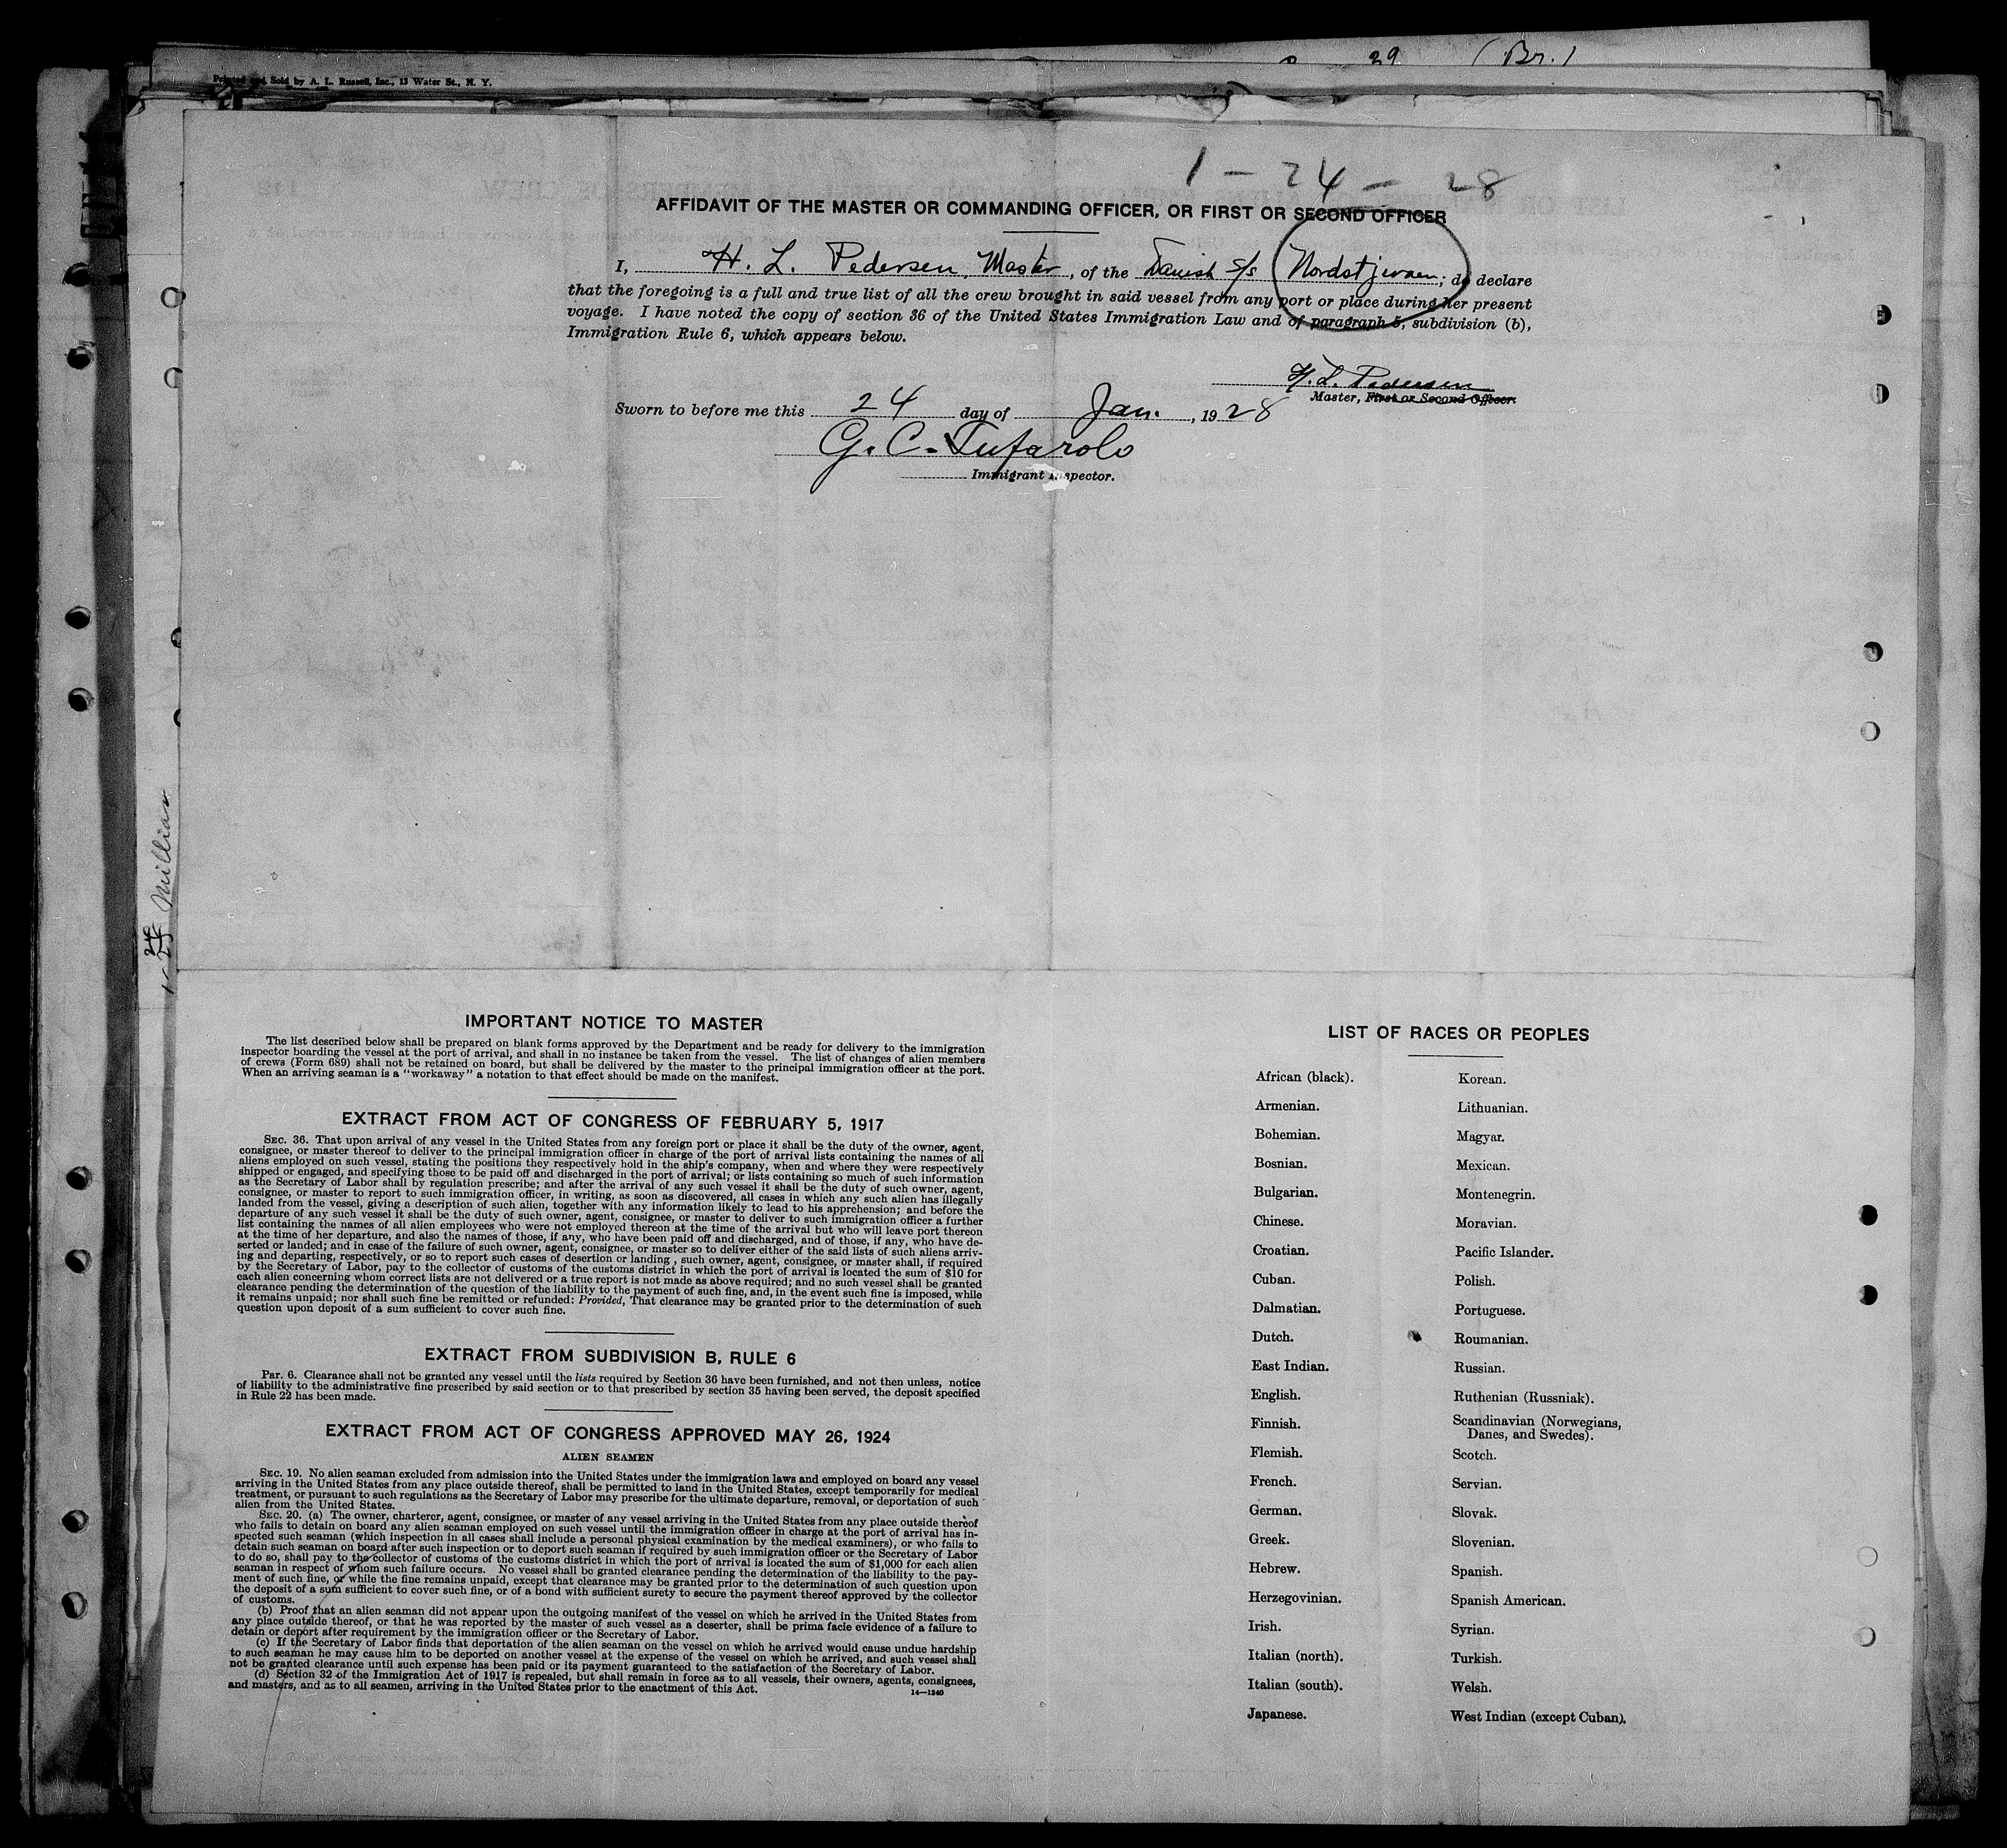 29 (Br.)
Printed and Sold by A. L. Russell, Inc., 13 Water St., N. Y.
1 - 24 - 28
AFFIDAVIT OF THE MASTER OR COMMANDING OFFICER, OR FIRST OR SECOND OFFICER
I, H. L. Pedersen, Master, of the Danish S/S Nordstjernen; do declare
that the foregoing is a full and true list of all the crew brought in said vessel from any port or place during her present
voyage. I have noted the copy of section 36 of the United States Immigration Law and of paragraph 5, subdivision (b),
Immigration Rule 6, which appears below.
H. L. Pedersen
Master, First or Second Officer.
Sworn to before me this 24 day of Jan., 1928
G. C. Tufarolo
Immigrant Inspector.
Millian
IMPORTANT NOTICE TO MASTER
The list described below shall be prepared on blank forms approved by the Department and be ready for delivery to the immigration
inspector boarding the vessel at the port of arrival, and shall in no instance be taken from the vessel. The list of changes of alien members
of crews (Form 689) shall not be retained on board, but shall be delivered by the master to the principal immigration officer at the port.
When an arriving seaman is a "workaway" a notation to that effect should be made on the manifest.
EXTRACT FROM ACT OF CONGRESS OF FEBRUARY 5, 1917
SEC. 36. That upon arrival of any vessel in the United States from any foreign port or place it shall be the duty of the owner, agent,
consignee, or master thereof to deliver to the principal immigration officer in charge of the port of arrival lists containing the names of all
aliens employed on such vessel, stating the positions they respectively hold in the ship's company, when and where they were respectively
shipped or engaged, and specifying those to be paid off and discharged in the port of arrival; or lists containing so much of such information
as the Secretary of Labor shall by regulation prescribe; and after the arrival of any such vessel it shall be the duty of such owner, agent,
consignee, or master to report to such immigration officer, in writing, as soon as discovered, all cases in which any such alien has illegally
landed from the vessel, giving a description of such alien, together with any information likely to lead to his apprehension; and before the
departure of any such vessel it shall be the duty of such owner, agent, consignee, or master to deliver to such immigration officer a further
list containing the names of all alien employees who were not employed thereon at the time of the arrival but who will leave port thereon
at the time of her departure, and also the names of those, if any, who have been paid off and discharged, and of those, if any, who have de-
serted or landed; and in case of the failure of such owner, agent, consignee, or master so to deliver either of the said lists of such aliens arriv-
ing and departing, respectively, or so to report such cases of desertion or landing , such owner, agent, consignee, or master shall, if required
by the Secretary of Labor, pay to the collector of customs of the customs district in which the port of arrival is located the sum of $10 for
each alien concerning whom correct lists are not delivered or a true report is not made as above required; and no such vessel shall be granted
clearance pending the determination of the question of the liability to the payment of such fine, and, in the event such fine is imposed, while
it remains unpaid; nor shall such fine be remitted or refunded: Provided, That clearance may be granted prior to the determination of such
question upon deposit of a sum sufficient to cover such fine.
EXTRACT FROM SUBDIVISION B, RULE 6
Par. 6. Clearance shall not be granted any vessel until the lists required by Section 36 have been furnished, and not then unless, notice
of liability to the administrative fine prescribed by said section or to that prescribed by section 35 having been served, the deposit specified
in Rule 22 has been made.
EXTRACT FROM ACT OF CONGRESS APPROVED MAY 26, 1924
ALIEN SEAMEN
SEC. 19. No alien seaman excluded from admission into the United States under the immigration laws and employed on board any vessel
arriving in the United States from any place outside thereof, shall be permitted to land in the United States, except temporarily for medical
treatment, or pursuant to such regulations as the Secretary of Labor may prescribe for the ultimate departure, removal, or deportation of such
alien from the United States.
SEC. 20. (a) The owner, charterer, agent, consignee, or master of any vessel arriving in the United States from any place outside thereof
who fails to detain on board any alien seaman employed on such vessel until the immigration officer in charge at the port of arrival has in-
spected such seaman (which inspection in all cases shall include a personal physical examination by the medical examiners), or who fails to
detain such seaman on board after such inspection or to deport such seaman if required by such immigration officer or the Secretary of Labor
to do so, shall pay to the collector of customs of the customs district in which the port of arrival is located the sum of $1,000 for each alien
seaman in respect of whom such failure occurs. No vessel shall be granted clearance pending the determination of the liability to the pay-
ment of such fine, or while the fine remains unpaid, except that clearance may be granted prior to the determination of such question upon
the deposit of a sum sufficient to cover such fine, or of a bond with sufficient surety to secure the payment thereof approved by the collector
of customs.
(b) Proof that an alien seaman did not appear upon the outgoing manifest of the vessel on which he arrived in the United States from
any place outside thereof, or that he was reported by the master of such vessel as a deserter, shall be prima facie evidence of a failure to
detain or deport after requirement by the immigration officer or the Secretary of Labor.
(c) If the Secretary of Labor finds that deportation of the alien seaman on the vessel on which he arrived would cause undue hardship
to such seaman he may cause him to be deported on another vessel at the expense of the vessel on which he arrived, and such vessel shall
not be granted clearance until such expense has been paid or its payment guaranteed to the satisfaction of the Secretary of Labor.
(d) Section 32 of the Immigration Act of 1917 is repealed, but shall remain in force as to all vessels, their owners, agents, consignees,
and masters, and as to all seamen, arriving in the United States prior to the enactment of this Act.
14—1240
LIST OF RACES OR PEOPLES
African (black).
Armenian.
Bohemian.
Bosnian.
Bulgarian.
Chinese.
Croatian.
Cuban.
Dalmatian.
Dutch.
East Indian.
English.
Finnish.
Flemish.
French.
German.
Greek.
Hebrew.
Herzegovinian.
Irish.
Italian (north).
Italian (south).
Japanese.
Korean.
Lithuanian.
Magyar.
Mexican.
Montenegrin.
Moravian.
Pacific Islander.
Polish.
Portuguese.
Roumanian.
Russian.
Ruthenian (Russniak).
Scandinavian (Norwegians,
Danes, and Swedes).
Scotch.
Servian.
Slovak.
Slovenian.
Spanish.
Spanish American.
Syrian.
Turkish.
Welsh.
West Indian (except Cuban).